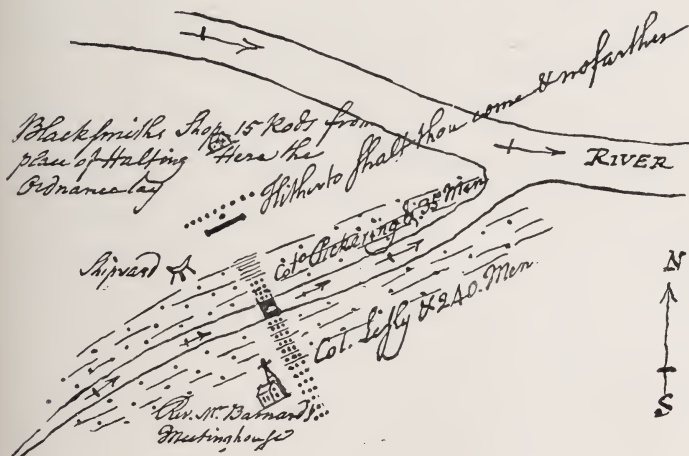 Blacksmiths Shop 15 Rods from
place of Halting Here the
Ordnance lay
Hitherto shalt thou come & no farther
RIVER
Shipyard
Col.º Pickering & 35 Men
Col. Lesly & 240. Men
Rev. Mr Barnard's
Meetinghouse
N
S